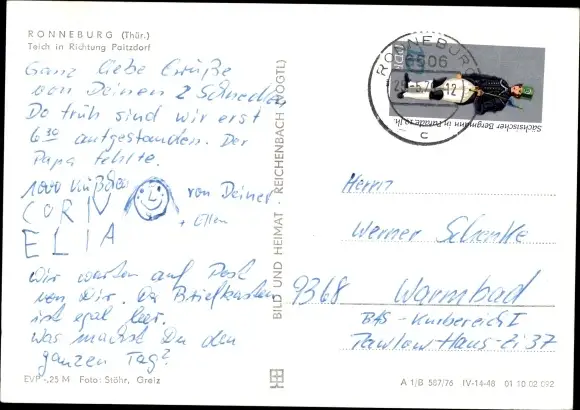 RONNEBURG (Thür.)
Teich in Richtung Paitzdorf
Ganz liebe Grüße
von Deinen 2 Schnecken
Do früh sind wir erst
6 30 aufgestanden. Der
Papa fehlte.
1000 Küßchen von Deiner
CORN
ELIA
+ Ellen
Wir warten auf Post
von Dir. Der Briefkasten
ist egal leer.
Was machst Du den
ganzen Tag?
EVP -,25 M Foto: Stöhr, Greiz
BILD UND HEIMAT REICHENBACH (VOGTL)
RONNEBURG
6506
12
c
DDR
Sächsischer Bergmann in Parade 19. Jh.
Herrn
Werner Schenke
9368 Warmbad
BfS - Kurbereich I
Pawlow Haus - Zi 37
A 1/B 587/76 IV-14-48 01 10 02 092